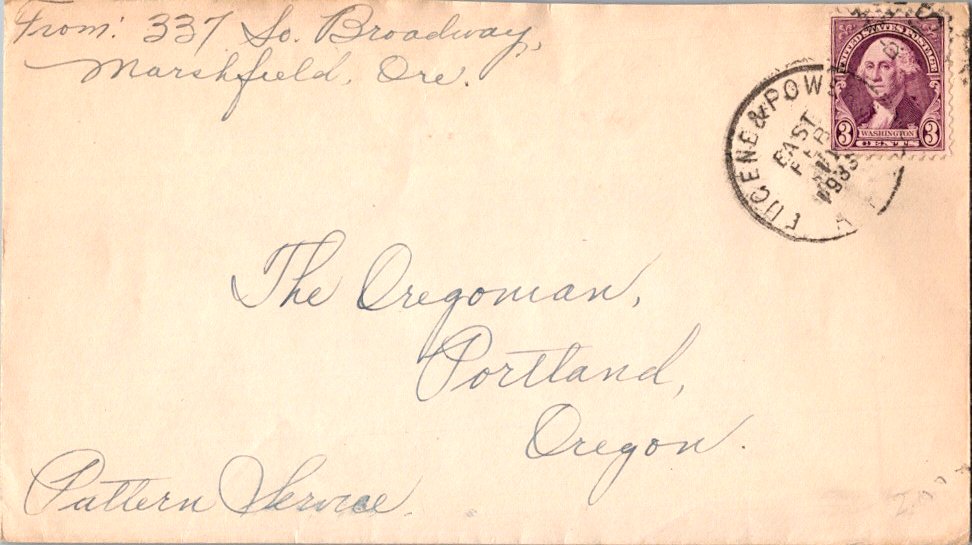 From: 337 So. Broadway,
Marshfield, Ore.
UNITED STATES POSTAGE
3 WASHINGTON 3
CENTS
EUGENE & POW
EAST
FEB
1933
The Oregonian,
Portland,
Oregon.
Pattern Service.